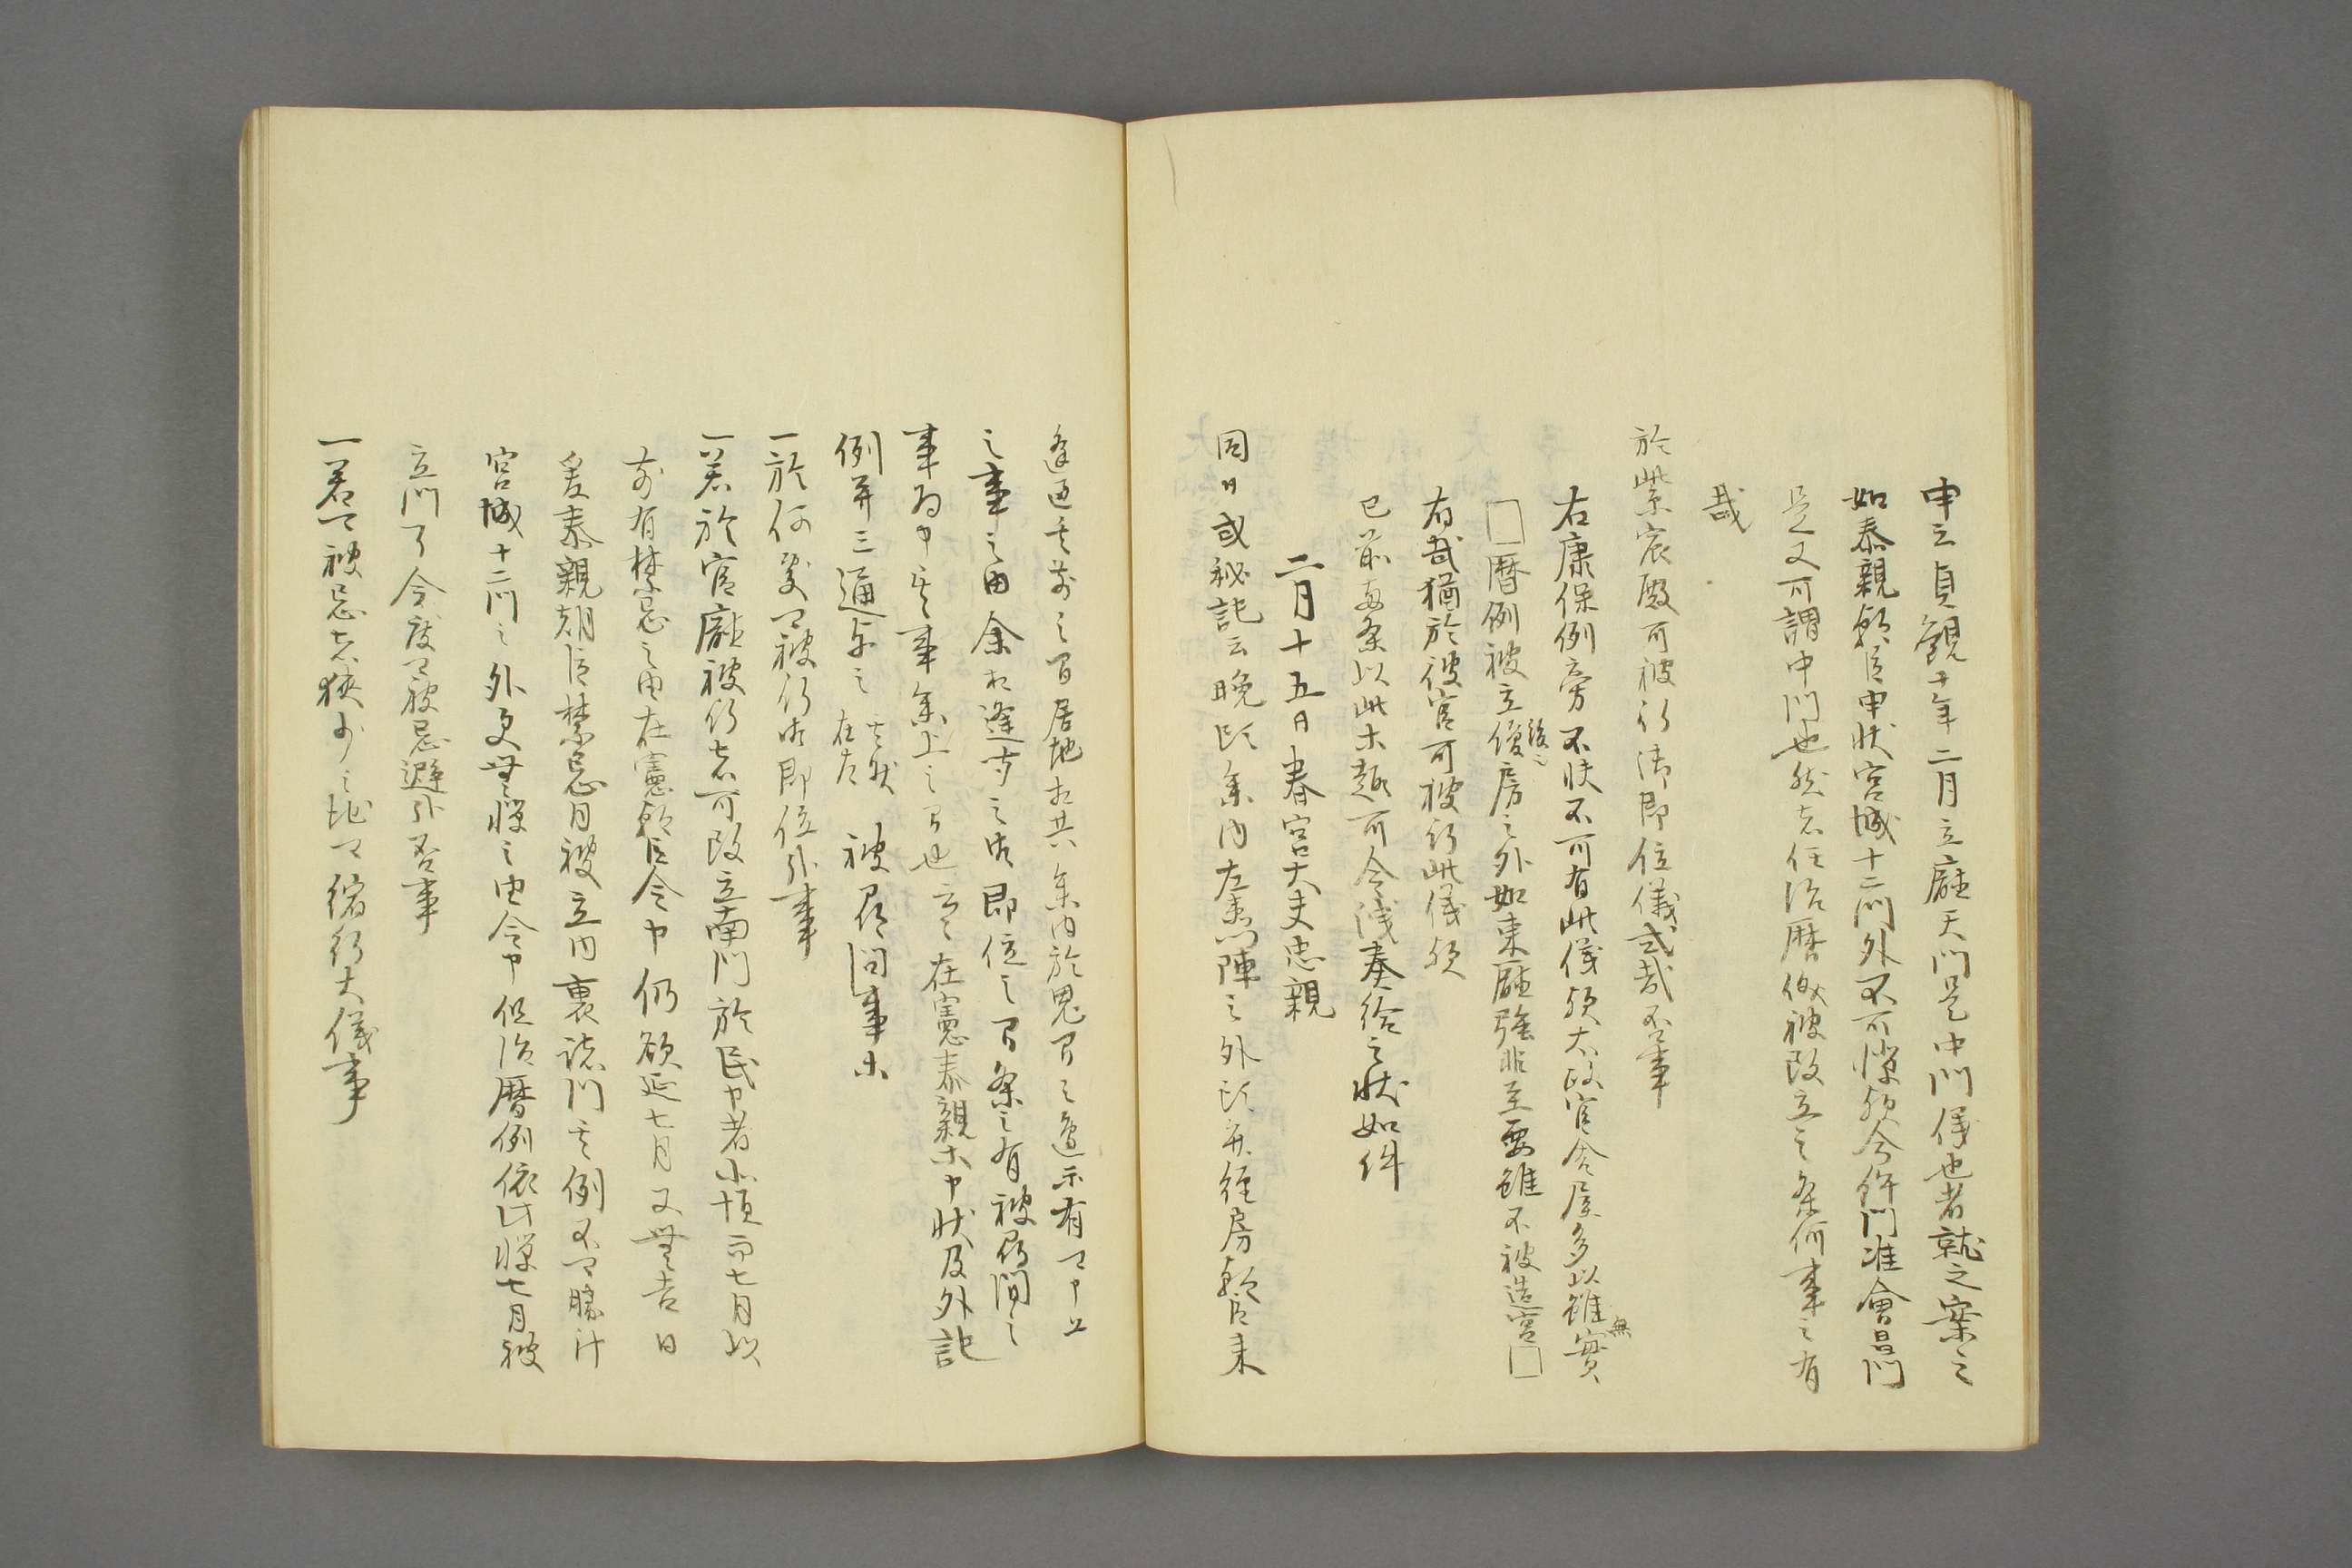 申云貞観十年二月立應天門是中門儀也者就之案之
如泰親朝臣申状宮城十二門外不可憚歟今件門准會昌門
是又可謂中門也然者任治暦例被改立之条何事之有
哉
於紫宸殿可被行御即位儀式哉否事
右康保例旁不快不可有此儀歟太政官舎屋多以雖無實
□暦例被立後房之外如東廳強非至要雖不被造宮□
有哉猶於彼官可被行此儀歟
已前両条以此等趣可令洩奏給之状如件
二月十五日春宮大夫忠親
同日或秘記云晩頭参内左衛門陣之外頭弁経房朝臣来
逢西之事
之事之由余相逢之時即位之間条々有被尋問之
事為申其事参上之間也云々在憲泰親等申状及外記
例并三通与之其状在左被尋問事等
一於何處可被行御即位哉事
一若於官廳被行者可改立南門於民中者而七月以
前有禁忌之由在憲朝臣令申仍欲延七月又無吉日
爰泰親朝臣禁忌月被立内裏諸門其例不可勝計
宮城十二門之外更無憚之由令申但治暦例依此憚七月被
立門了今度可被忌避哉否事
一若可被忌者狭少之地可縮行大儀事